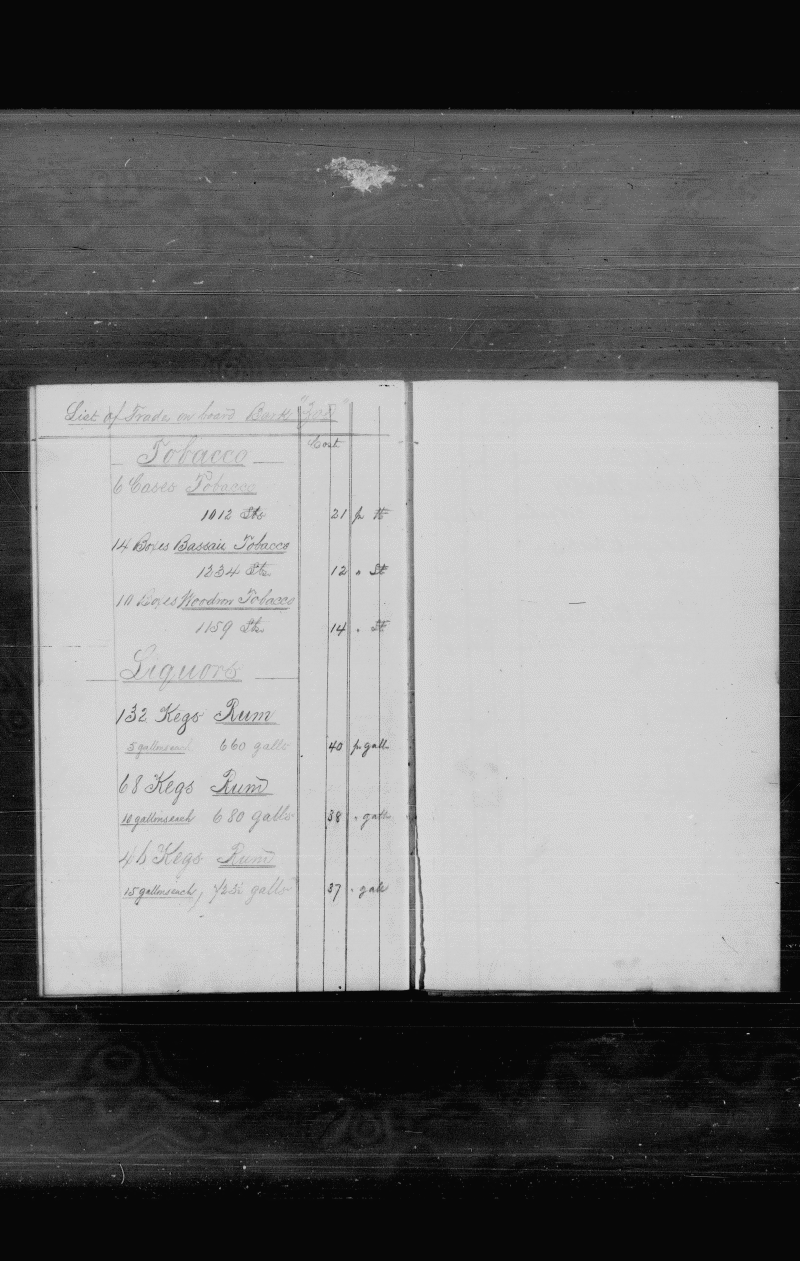 List of Trade on board Bark "Zoe"
Cost
Tobacco
6 Cases Tobacco
1012 lbs 21 pr lb
14 Boxes Tobacco
1234 lbs 12 " lb
10 Boxes Tobacco
1159 lbs 14 " lb
Liquors
132 Kegs Rum
5 gallons each 660 galls 40 pr gall
68 Kegs Rum
10 gallons each 680 galls 38 " gall
Kegs Rum
15 gallons each, galls 37 " gall